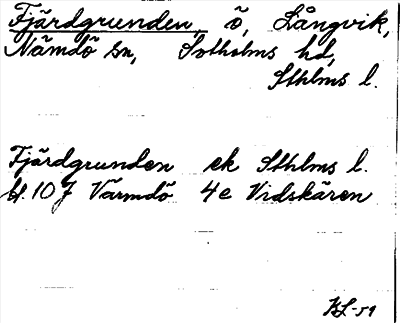 Fjärdgrunden, ö, Långvik,
Nämdö sn, Sotholms hd,
Sthlms l.
Fjärdgrunden ek Sthlms l.
bl. 10 J Värmdö 4e Vidskären
BL-59